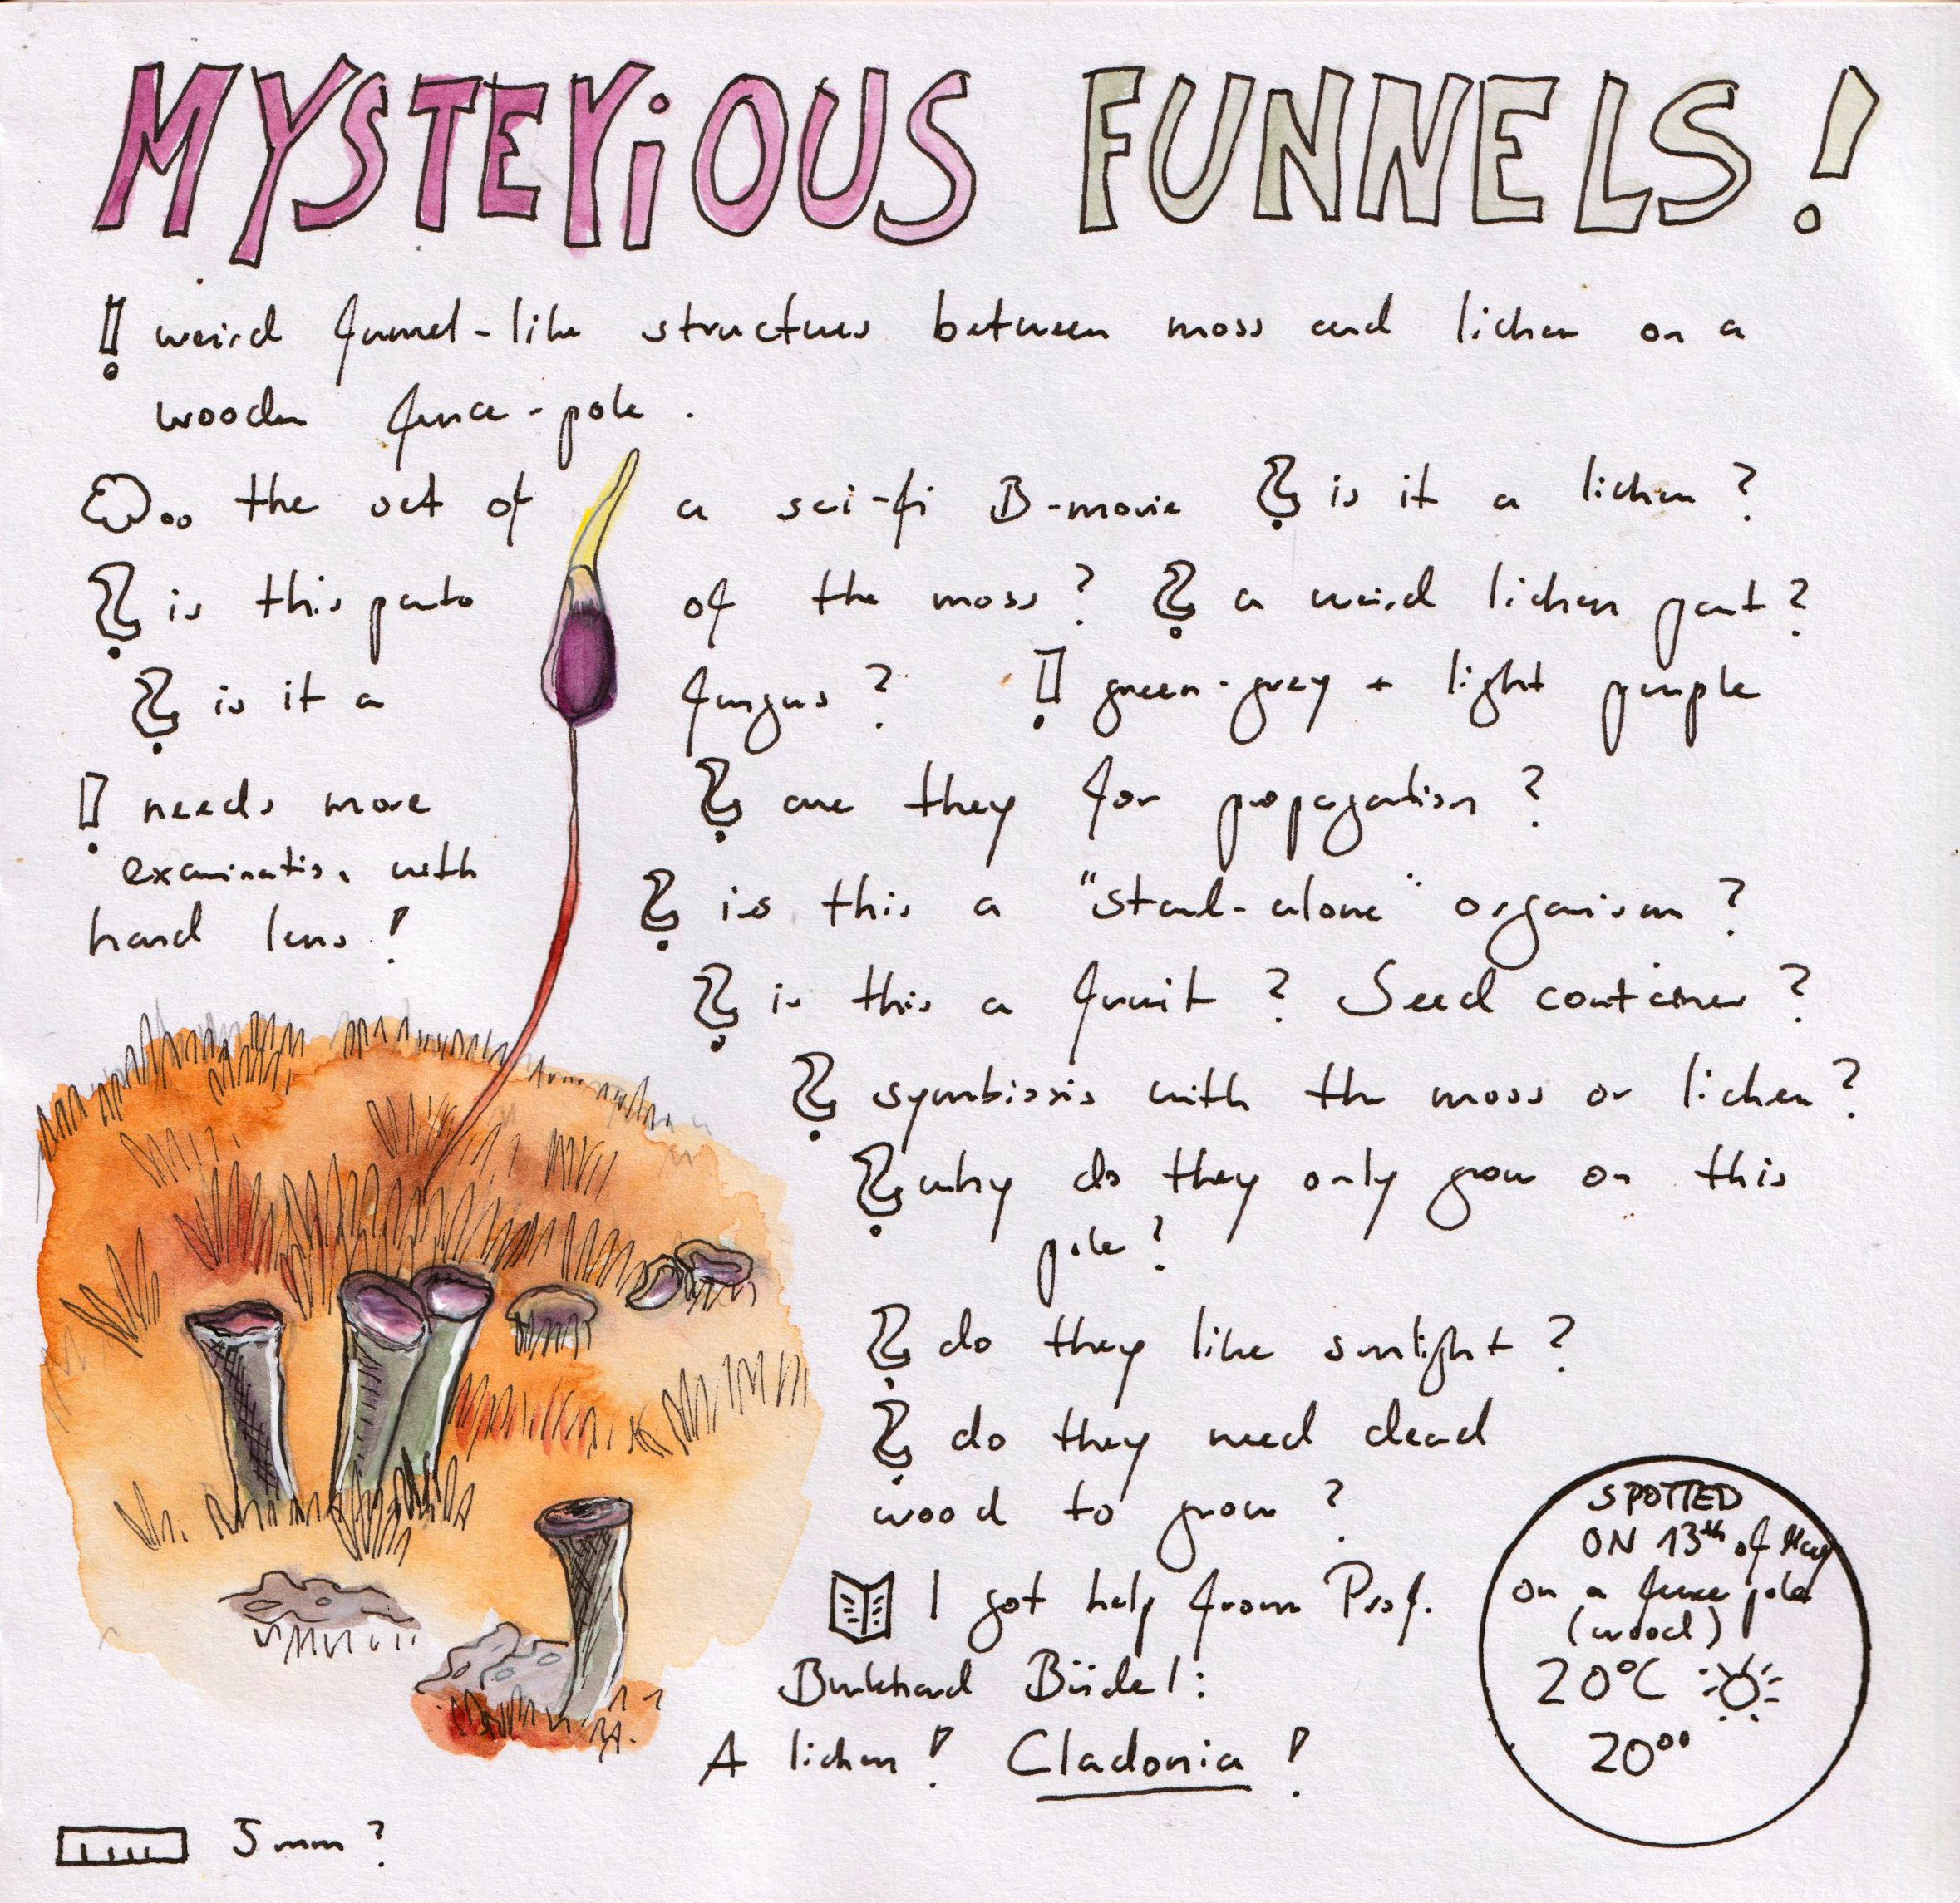 MYSTERiOUS FUNNELS!
weird funnel-like structures between moss and lichen on a
wooden fence-pole.
the set of a sci-fi B-movie is it a lichen?
is this parts of the moss? a weird lichen part?
is it a fungus? green-grey + light purple
needs more
examination with
hand lens!
are they for propagation?
is this a "stand-alone" organism?
is this a fruit? Seed container?
symbiosis with the moss or lichen?
why do they only grow on this
pole?
do they like sunlight?
do they need dead
wood to grow?
I got help from Prof.
Burkhard Büdel:
A lichen! Cladonia!
SPOTTED
ON 13th of May
on a fence pole
(wood)
20°C
20°°
5mm?